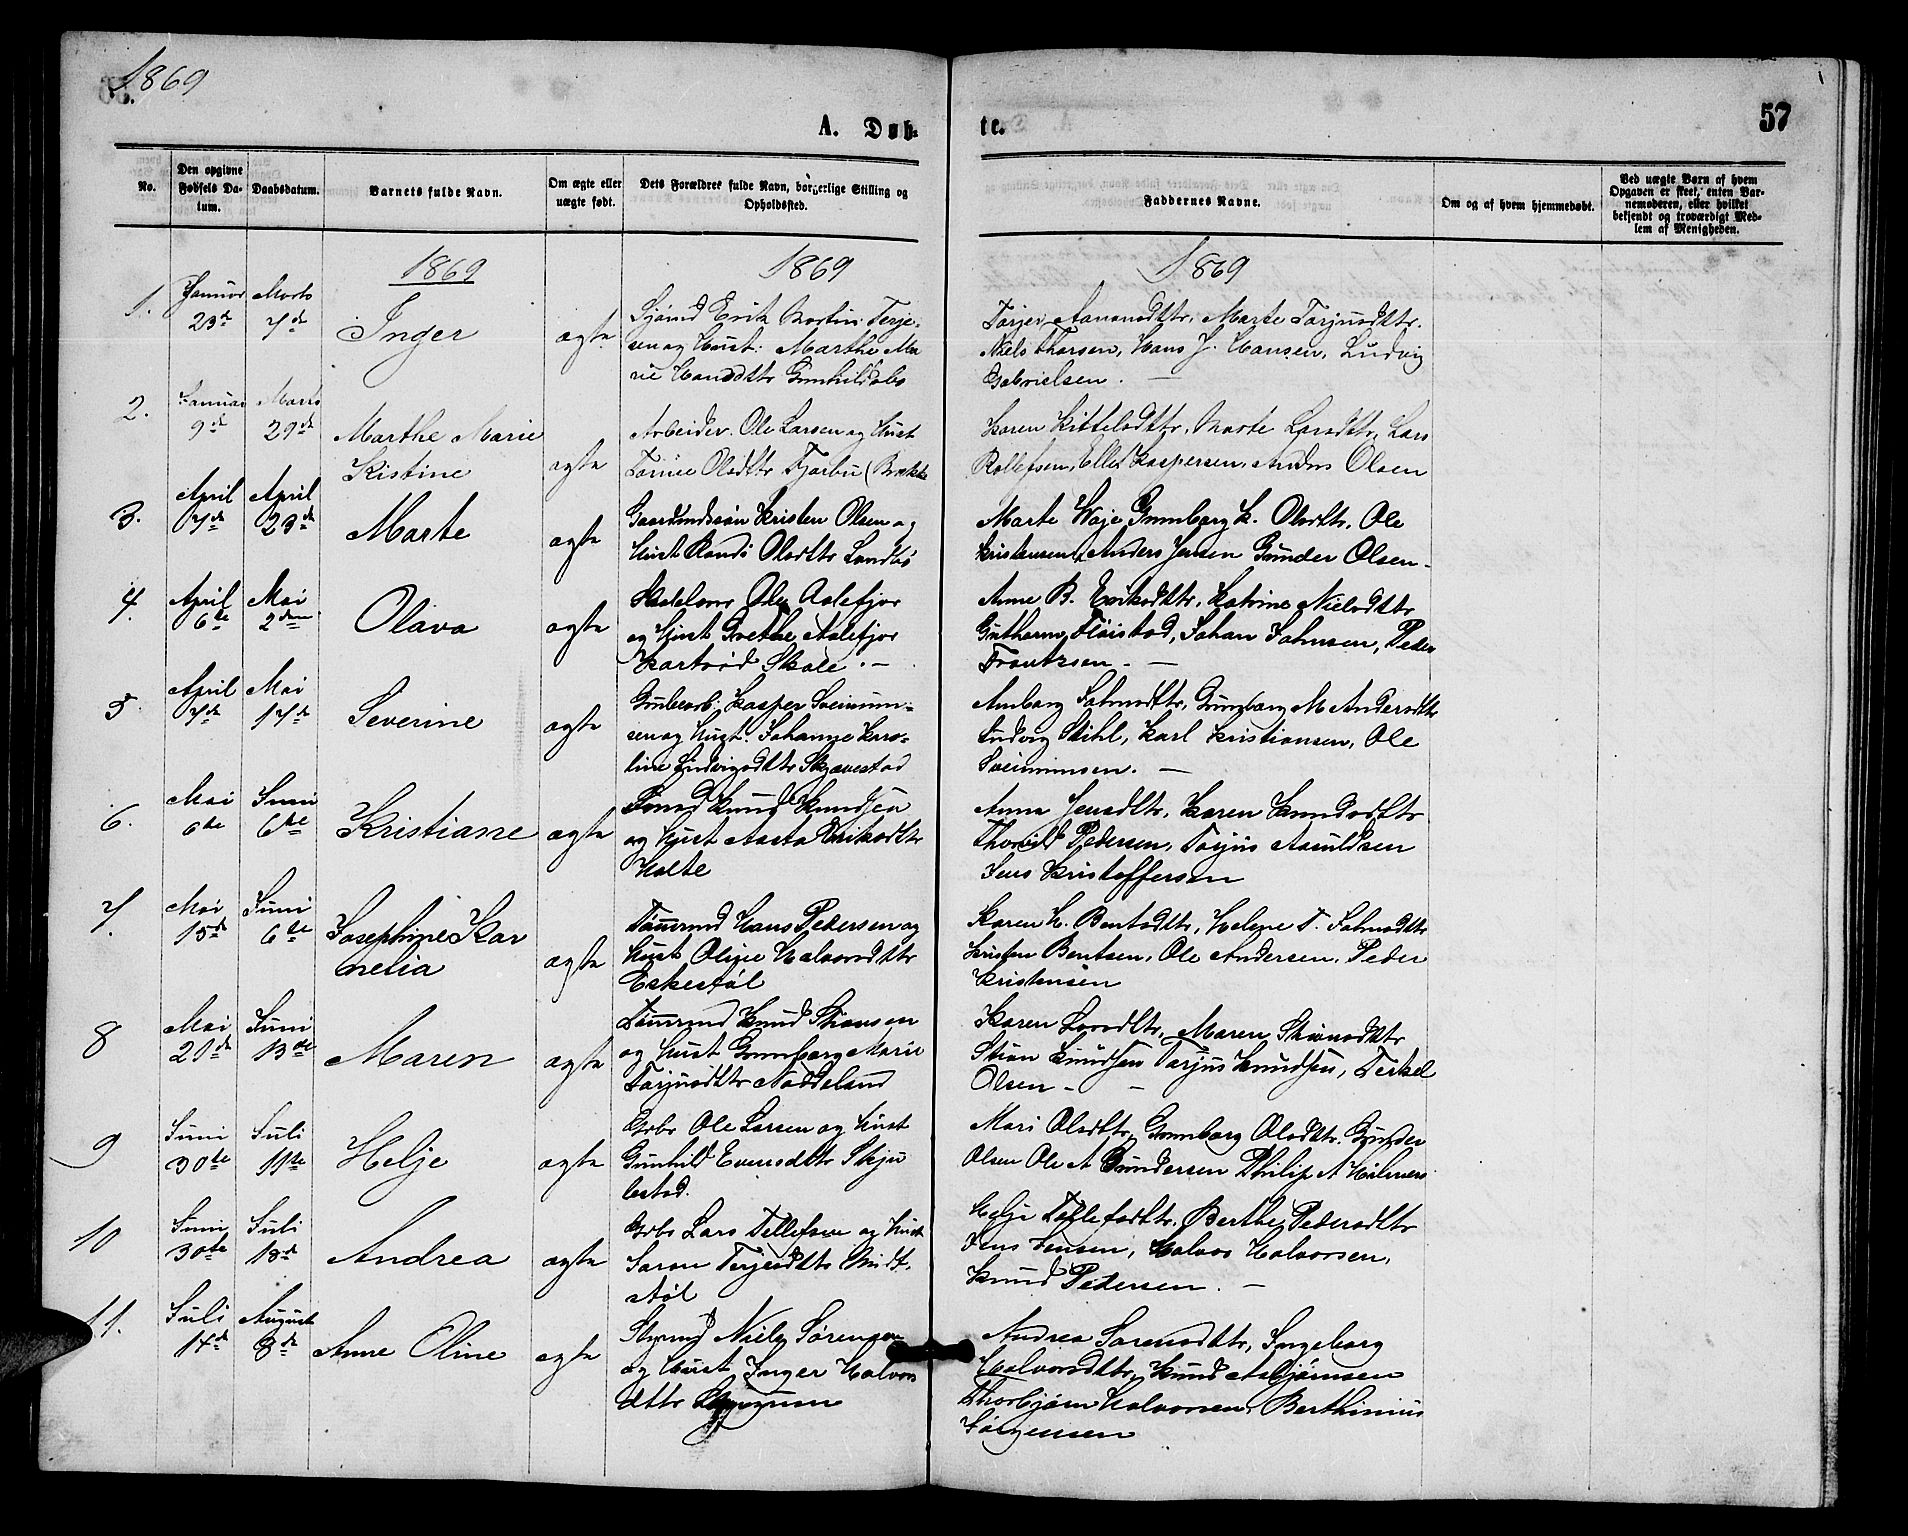 1869
A. Døb-
te.
57
No.
Den opgivne Fødsels Da-
tum.
Daabsdatum.
Barnets fulde Navn.
Om ægte eller uægte født.
Dets Forældres fulde Navn, borgerlige Stilling og Opholdssted.
Faddernes Navne.
Om og af hvem hjemmedøbt.
Ved uægte Børn af hvem Opgaven er skeet, enten Bar-
nemoderen, eller hvilket bekjendt og troværdigt Med-
lem af Menigheden.
1869
1869
1869
1.
Januar
23de
Marts
7de
Inger
ægte
Sjømd Erik Martin Terje-
sen og Hust: Marthe Ma
rie Hansdttr
Marte Tarjusdttr.
Niels Tharsen, Hans J. Hansen, Ludvig
Gabrielsen. —
2.
Januar
9de
Marts
29de
Marthe Marie
Kistine
ægte
Arbeider Ole Larsen og Hust
Olsdttr
Karen Kittelsdttr, Marte Larsdttr, Lars
Rollefsen, Ellef Kaspersen, Anders Olsen
3.
April
7de
April
23de
Marte
ægte
Gaardmdssøn Kristen Olsen og
Hust Randi Olsdttr Landbø
Marte Waje Gunnborg K. Olsdtr, Ole
Kristensen, Anders Jensen Gunder Olsen —
4.
April
6te
Mai
2den
Olava
ægte
Ole Aalefjær
og Hust Grethe Aalefjær
Skole. —
Anne B. Eriksdttr, Katrine Nielsdttr
Guttorm Fløistad, Johan Johnsen, Peder
Frantzsen. —
5
April
7de
Mai
17de
Severine
ægte
Kasper Sveinum-
sen og Hust. Johanne Karo-
line Ludvigsdttr Skjævestad
Amborg Johnsdttr, Gunborg M Andersdttr
Ludvig Stihl, Karl Kristiansen, Ole
Sveinumsen. —
6.
Mai
6te
Juni
6te
Kristiane
ægte
Knud Knudsen
og Hust Aasta Eriksdttr
Holte
Anna Jensdttr, Karen Knudsdttr
Pedersen, Tarjus Aanuldsen
Jens Kristoffersen
7.
Mai
15de
Juni
6te
Josephine Kar
nelia
ægte
Tømmrmd Hans Pedersen og
Hust Oline Halvorsdttr
Eskestøl
Karen H. Bentsdttr, Helene T. Johnsdttr
Kristen Bentsen, Ole Andersen, Peder
Kristensen
8
Mai
21de
Juni
13de
Maren
ægte
Tømmrmd Knud Stiansen
og Hust Gunnborg Marie
Tarjusdttr Naddeland
Karen Larsdttr, Maren Stiansdttr
Stian Knudsen Tarjus Knudsen, Terkel
Olsen — —
9
Juni
30te
Juli
11te
Helje
ægte
Grbr Ole Larsen og Hust
Gunhild Evensdttr Skju
lestad.
Mari Olsdttr, Gunnborg Olsdttr, Gunder
Olsen Ole A Gundersen Philip A Hilmers
10
Juni
30te
Juli
18de
Andrea
ægte
Grbr Lars Tellefsen og Hust
Saran Terjesdttr Midt-
støl
Helje Tellefsdttr, Berthe Pedersdttr
Jens Jensen, Halvor Halvorsen,
Knud Pedersen. —
11.
Juli
14de
August
8de
Anne Oline
ægte
Styrmd Niels Sørensen
og Hust Inger Halvors
dttr
Andrea Sørensdttr, Ingeborg
Halvorsdttr, Knud Asbjørnsen
Thorbjørn Halvorsen, Berthinius
Jørgensen